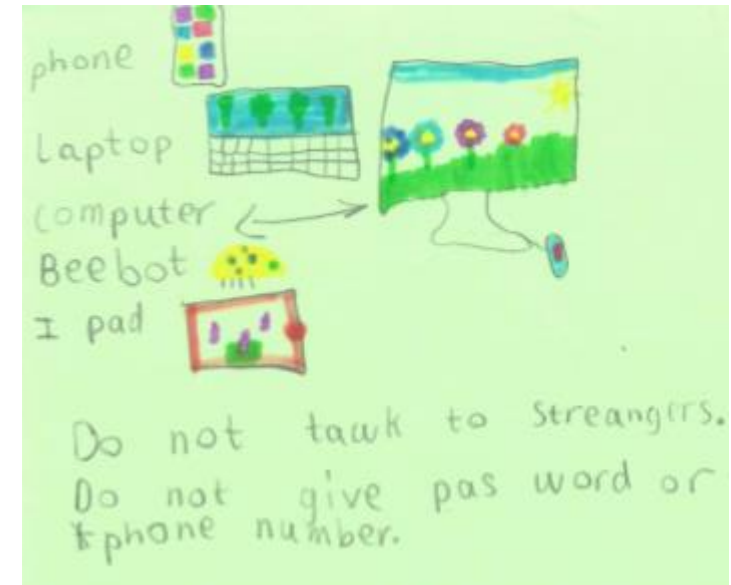 phone
Laptop
computer
Beebot
I pad
Do not tawk to streangirs.
Do not give pas word or
phone number.